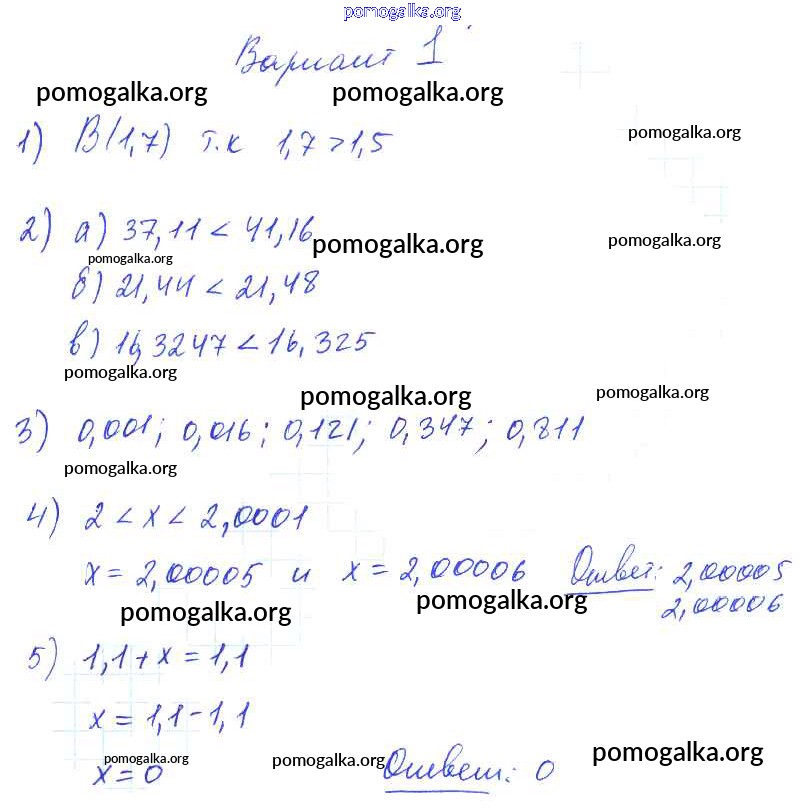 pomogalka.org
Вариант 1
pomogalka.org pomogalka.org
1) В(1,7) т.к 1,7>1,5
pomogalka.org
2) а) 37,11 < 41,16
pomogalka.org pomogalka.org
pomogalka.org
б) 21,44 < 21,48
в) 16,3247 < 16,325
pomogalka.org
pomogalka.org pomogalka.org
3) 0,001; 0,016; 0,121; 0,347; 0,811
pomogalka.org
4) 2 < x < 2,0001
x = 2,00005 и x = 2,00006 Ответ: 2,00005
2,00006
pomogalka.org pomogalka.org
5) 1,1 + x = 1,1
x = 1,1 - 1,1
pomogalka.org pomogalka.org pomogalka.org
x = 0 Ответ: 0